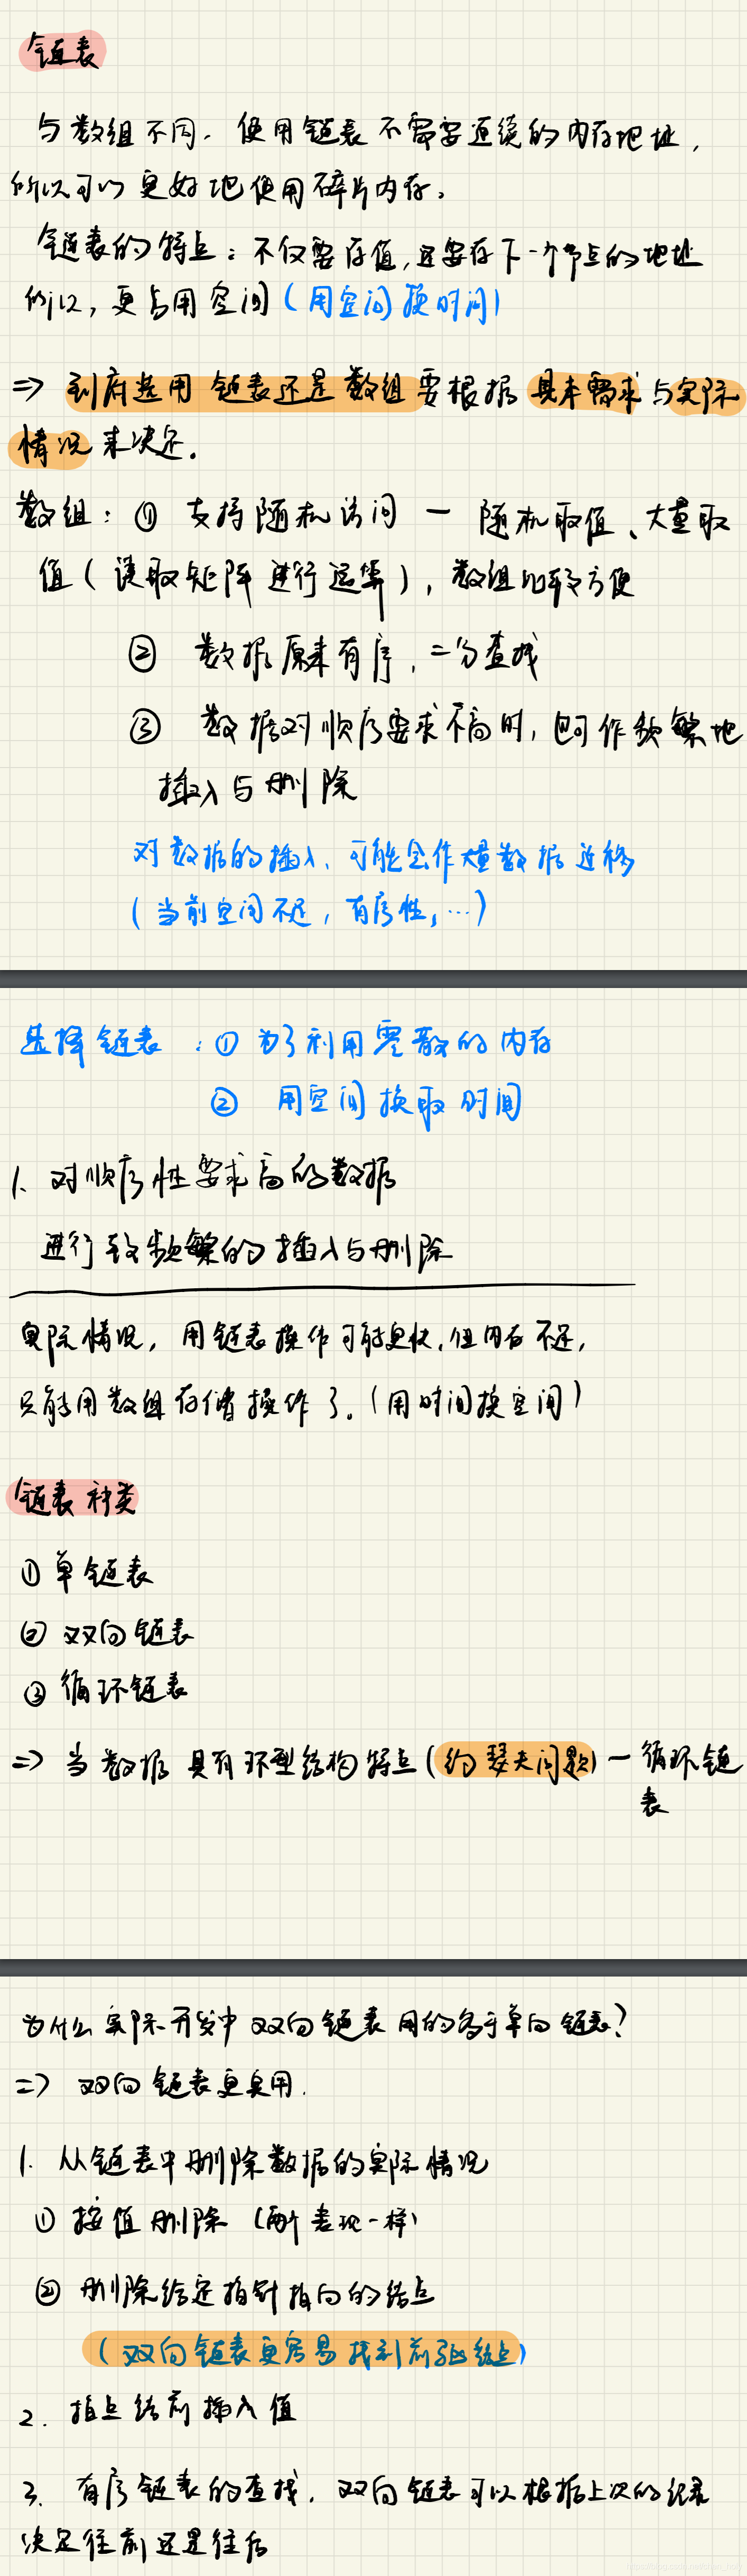 链表
与数组不同，使用链表不需要连续的内存地址，
所以可以更好地使用碎片内存。
链表的特点：不仅要存值，还要存下一个节点的地址
所以，更占用空间（用空间换时间）
=> 到底选用链表还是数组要根据具体需求与实际
情况来决定。
数组：① 支持随机访问 — 随机取值、大量取
值（读取矩阵进行运算），数组比较方便
② 数据原来有序，二分查找
③ 数据对顺序要求不高时，也可作频繁地
插入与删除
对数据的插入、可能会作大量数据迁移
（当前空间不足，有序性，…）
选择链表：① 为了利用零散的内存
② 用空间换取时间
1. 对顺序性要求高的数据
进行较频繁的插入与删除
实际情况，用链表操作可能更快，但内存不足，
只能用数组存储操作了。（用时间换空间）
链表种类
① 单链表
② 双向链表
③ 循环链表
=> 当数据具有环型结构特点（约瑟夫问题）— 循环链
表
为什么实际开发中双向链表用的多于单向链表？
=> 双向链表更实用．
1. 从链表中删除数据的实际情况
① 按值删除（两个表现一样）
② 删除给定指针指向的结点
（双向链表更容易找到前驱结点）
2. 指点结前插入值
3. 有序链表的查找，双向链表可以根据上次的结果
决定往前还是往后